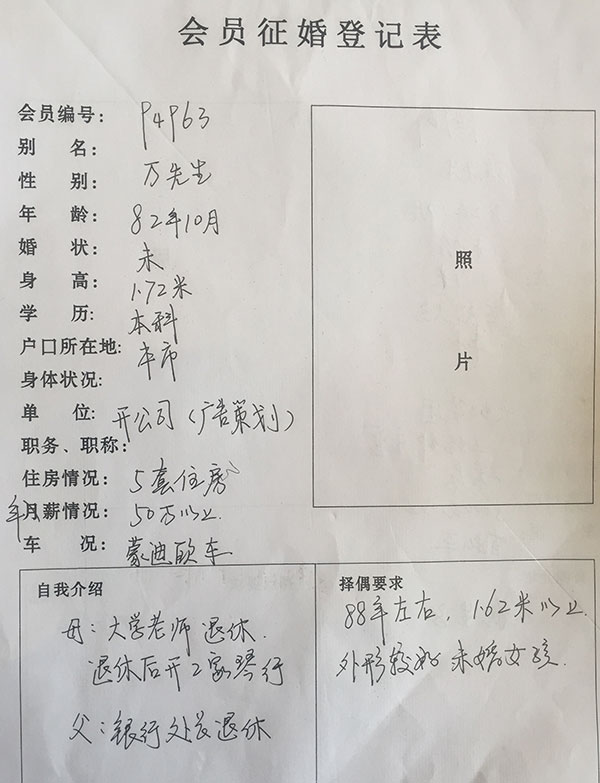 会员征婚登记表
会员编号: P4P63
别 名:
性 别: 万先生
年 龄: 82年10月
婚 状: 未
身 高: 1.72米
学 历: 本科
户口所在地: 本市
身体状况:
单 位: 开公司(广告策划)
职务、职称:
住房情况: 5套住房
年 月薪情况: 50万以上
车 况: 蒙迪欧车
照
片
自我介绍
母:大学老师退休.
退休后开2家琴行
父:银行处长退休
择偶要求
88年左右, 1.62米以上.
外形较好 未婚女孩.